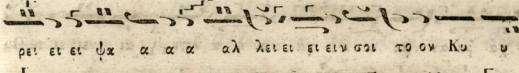 ρει ει ει ψα α α α αλ λει ει ει ειν σοι το ον Κυ υ